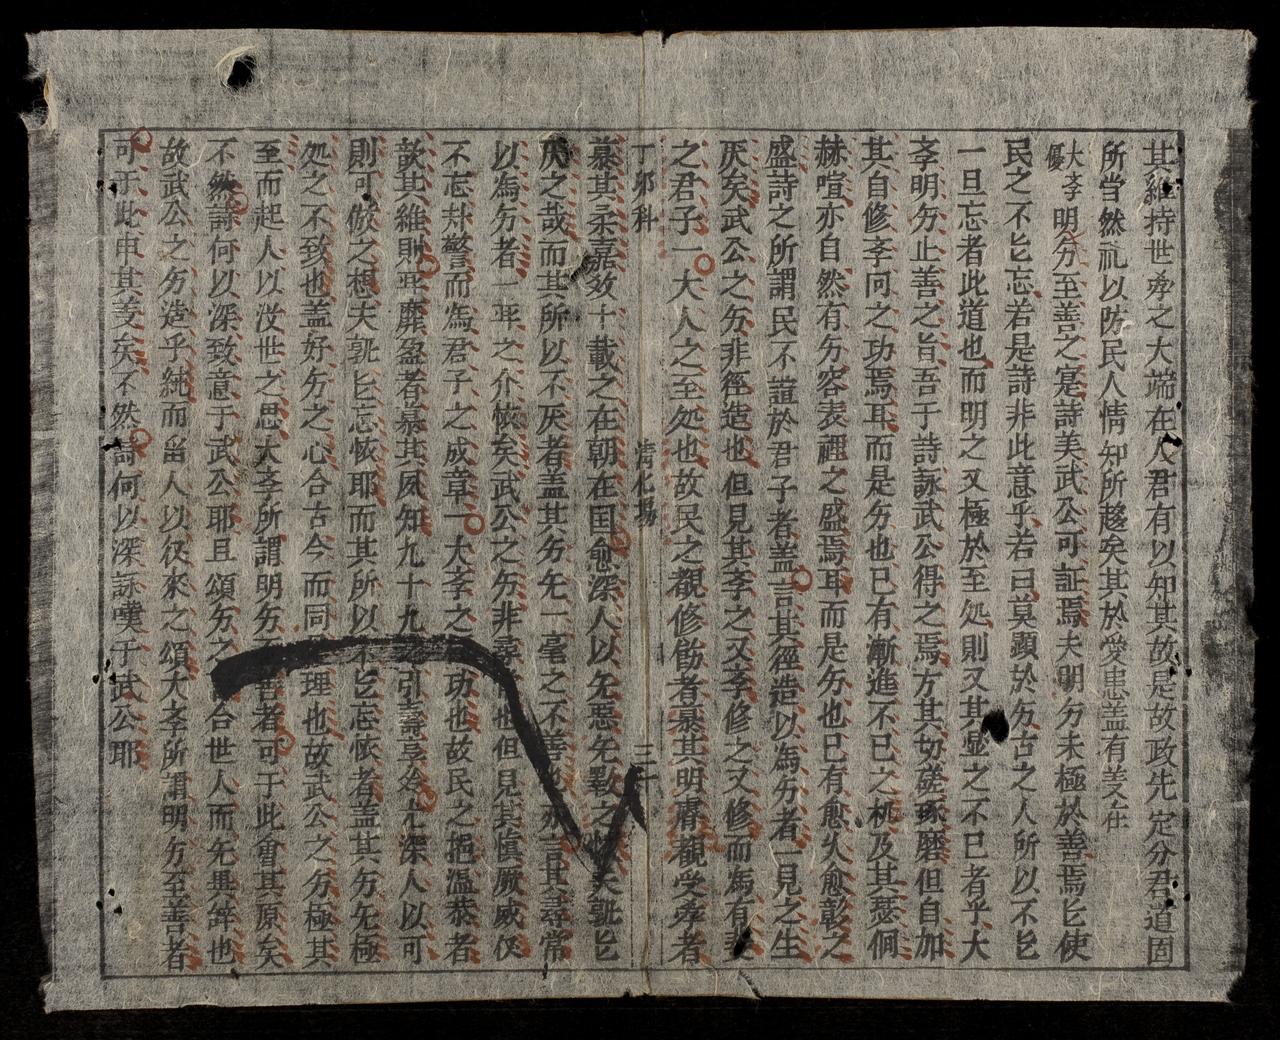 其維持世孝之大端在人君有以知其故是故政先定分君道固
所當然礼以防民人情知所趍矣其於愛患盖有羙仕
優
大孝明㐱至善之寔詩美武公可証焉夫明㐱未極於善焉𠤎使
民之不𠤎忘若是詩非此意乎若曰莫顕於㐱古之人所以不𠤎
一旦忘者此道也而明之又極於至処則又其虚之不巳者乎大
斈明㐱止善之旨吾于詩詠武公得之焉方其切磋琢磨但自加
其自修斈问之功焉耳而是㐱也巳有漸進不巳之机及其瑟僩
赫喧亦自然有㐱容表裡之盛焉耳而是㐱也巳有愈久愈彰之
盛詩之所謂民不諠於君子者盖言其徑造以為㐱者一見之生
厌矣武公之㐱非徑造也但見其斈之又斈修之又修而為有斐
之君子一大人之至処也故民之覩修飭者㬥其明膚觀受孝者
丁卯科
情化塲
三十
慕其柔嘉数十載之在朝在国愈深人以旡惡旡斁之懐夫孰𠤎
厌之哉而其所以不厌者盖其㐱旡一毫之不善也亦言其尋常
以為㐱者一玩之介恢矣武公之㐱非尋常也但見其慎厥威仪
不忘㳟警而為君子之成章一大斈之功也故民之挹溫恭者
歆其維則玩靡盈者慕其夙知九十九之引壽㐂尤深人以可
則可倣之想夫孰𠤎忘恢耶而其所以不𠤎忘恢者盖其㐱旡極
処之不致也盖好㐱之心合古今而同理也故武公之㐱極其
至而起人以沒世之思大斈所謂明㐱至善者可于此㑹其原矣
不然詩何以深致意于武公耶且頌㐱之合世人而旡異辞也
故武公之㐱造乎純而畄人以从來之頌大斈所謂明㐱至善者
可于此申其羙矣不然詩何以深詠嘆于武公耶